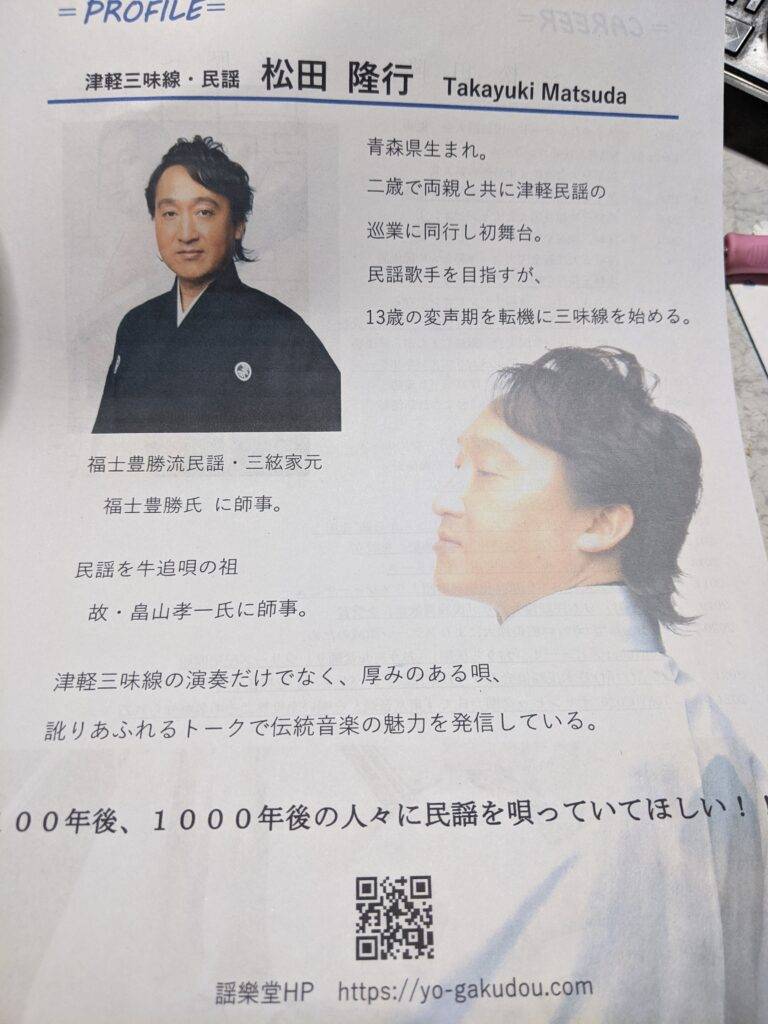 = PROFILE=
津軽三味線・民謡 松田 隆行 Takayuki Matsuda
青森県生まれ。
二歳で両親と共に津軽民謡の
巡業に同行し初舞台。
民謡歌手を目指すが、
13歳の変声期を転機に三味線を始める。
福士豊勝流民謡・三絃家元
福士豊勝氏 に師事。
民謡を牛追唄の祖
故・畠山孝一氏に師事。
津軽三味線の演奏だけでなく、厚みのある唄、
訛りあふれるトークで伝統音楽の魅力を発信している。
00年後、1000年後の人々に民謡を唄っていてほしい！！
謡樂堂HP https://yo-gakudou.com